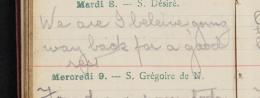 Mardi 8. — S. Désiré.
We are I beleive going
way back for a good
rest
Mercredi 9. — S. Grégoire de N.